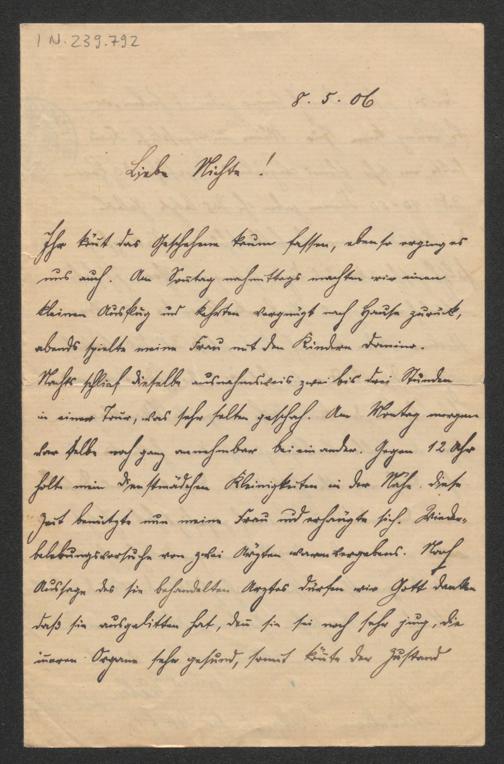 IN. 239.792
8. 5. 06
Liebe Nichte!
Ihr könt das Geschehene kaum fassen, ebenso erging es
uns auch. Am Sontag nachmittags machten wir einen
kleinen Ausflug und kehrten vergnügt nach Hause zurück,
abends spielte meine Frau mit den Kindern Domino.
Nachts schlief dieselbe ausnahmsweis zwei bis drei Stunden
in einer Tour, was sehr selten geschah. Am Montag morgen
war selbe noch ganz annehmbar beieinander. Gegen 12 Uhr
holte mein Dienstmädchen Kleinigkeiten in der Nähe. diese
Zeit benützte nun meine Frau und erhängte sich. Wieder-
belebungsversuche von zwei Ärzten waren vergebens. Nach
Aussage des sie behandelten Arztes dürfen wir Gott danken
daß sie ausgelitten hat, den sie sei noch sehr jung, die
inneren Organe sehr gesund, somit könte der Zustand